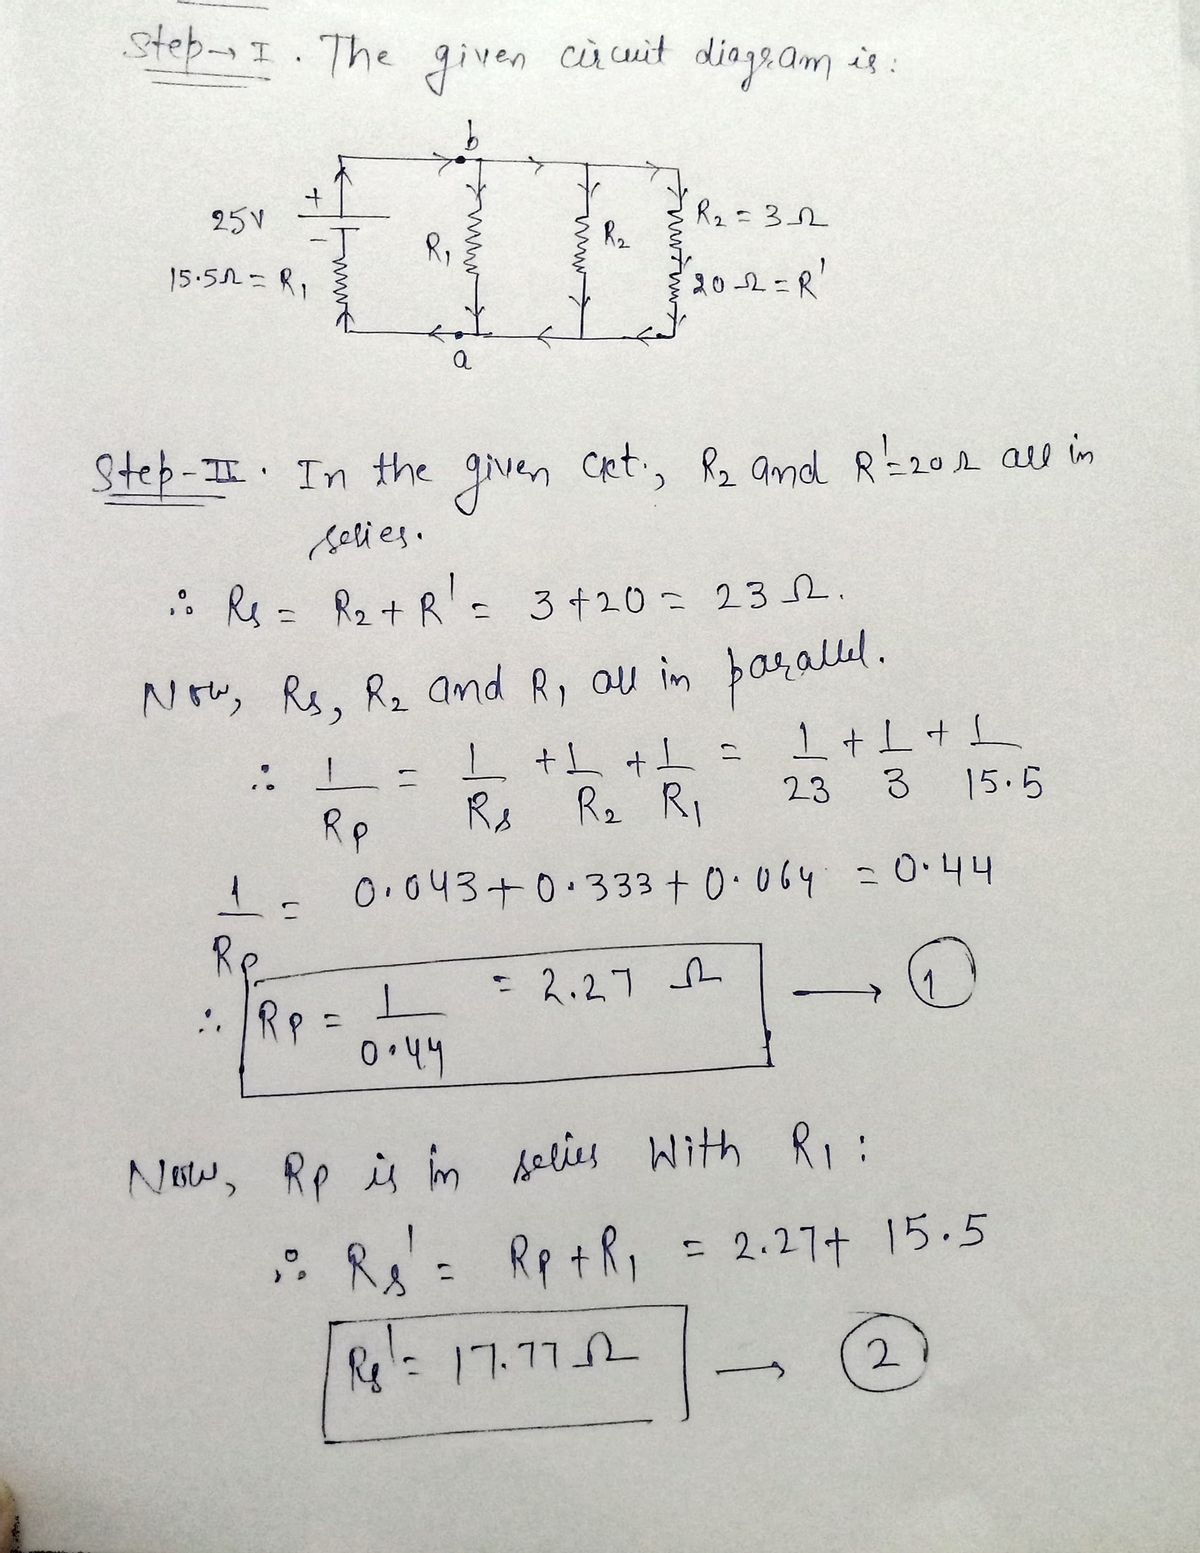 Step → I. The given circuit diagram is:
b
+
25V
-
15.5Ω = R₁
R₁
R₂
R₂ = 3Ω
20Ω = R'
a
Step-II. In the given cket., R₂ and R'=20Ω are in
series.
∴ Rs = R₂ + R' = 3+20 = 23Ω.
Now, Rs, R₂ and R₁ are in parallel.
∴ 1/Rp = 1/Rs + 1/R₂ + 1/R₁ = 1/23 + 1/3 + 1/15.5
1/Rp = 0.043 + 0.333 + 0.064 = 0.44
∴ Rp = 1/0.44 = 2.27 Ω → ①
Now, Rp is in series with R₁ :
∴ Rs' = Rp + R₁ = 2.27 + 15.5
Rs' = 17.77 Ω → ②